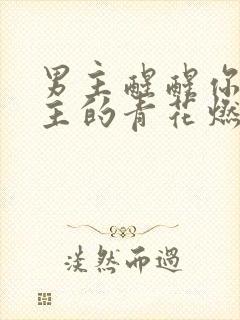 男主醒醒你
主的青花燃
淡然而過